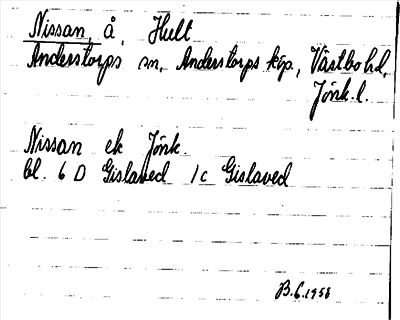 Nissan, å, Hult
Anderstorps sn, Anderstorps köp, Västbo hd,
Jönk. l.
Nissan ek Jönk.
bl. 6 D Gislaved 1c Gislaved
B.C. 1958